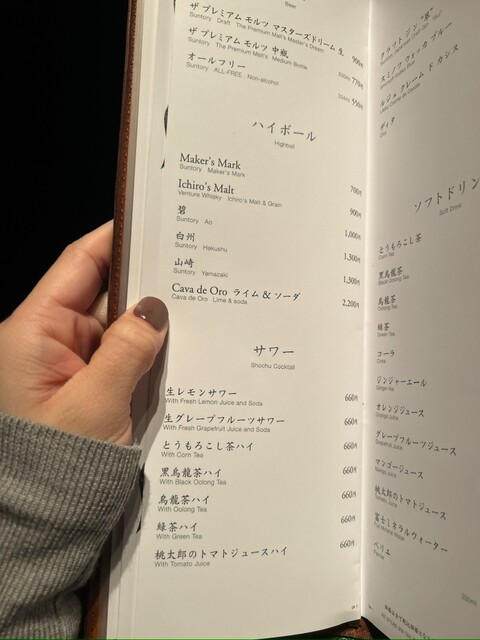 Beer
ザ プレミアム モルツ マスターズドリーム 生 900円
Suntory Draft The Premium Malt's Master's Dream
ザ プレミアム モルツ 中瓶 500ml 770円
Suntory The Premium Malt's Medium Bottle
オールフリー 334ml 550円
Suntory ALL-FREE Non-alcohol
ハイボール
Highball
Maker's Mark 700円
Suntory Maker's Mark
Ichiro's Malt 900円
Venture Whisky Ichiro's Malt & Grain
碧 1,000円
Suntory Ao
白州 1,300円
Suntory Hakushu
山崎 1,300円
Suntory Yamazaki
Cava de Oro ライム & ソーダ 2,200円
Cava de Oro Lime & soda
サワー
Shochu Cocktail
生レモンサワー 660円
With Fresh Lemon Juice and Soda
生グレープフルーツサワー 660円
With Fresh Grapefruit Juice and Soda
とうもろこし茶ハイ 660円
With Corn Tea
黒烏龍茶ハイ 660円
With Black Oolong Tea
烏龍茶ハイ 660円
With Oolong Tea
緑茶ハイ 660円
With Green Tea
桃太郎のトマトジュースハイ 660円
With Tomato Juice
クラフト ジン "翠"
スミノフ ウォッカ ブルー
ルジェ クレーム ド カシス
ディタ
Dita
ソフトドリン
Soft Drink
とうもろこし茶
Corn Tea
黒烏龍茶
Black Oolong Tea
烏龍茶
Oolong Tea
緑茶
Green Tea
コーラ
Coke
ジンジャーエール
Ginger Ale
オレンジジュース
Orange Juice
グレープフルーツジュース
Grapefruit Juice
マンゴージュース
Mango Juice
桃太郎のトマトジュース
Tomato Juice
富士ミネラルウォーター
Fuji Mineral Water
ペリエ
Perrier